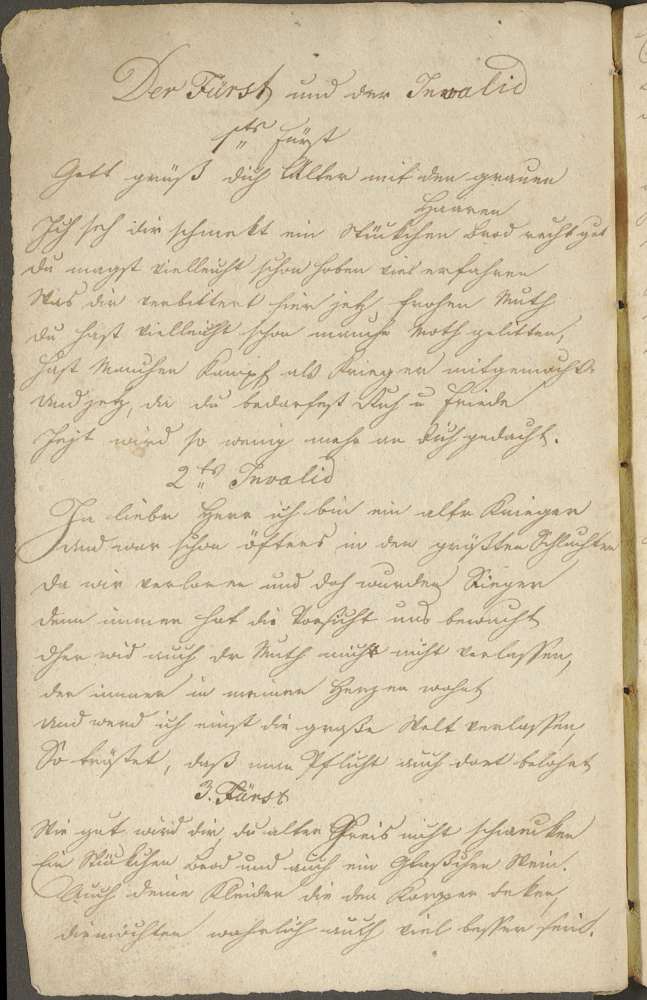 Der Fürst und der Invalid
1ts Fürst
Gott grüß dich Alter mit den grauen
Haaren
Ich seh dir schmekt ein Stückchen Brod recht gut
du magst vielleicht schon haben viel erfahren
Was dir verbittert hier jetz frohen Muth
du hast vielleicht schon manche Noth gelitten,
Hast Manchen Kampf als Krieger mitgemacht
Und jetz, da du bedarfest Ruh u Friede
Jezt wird so wenig mehr an dich gedacht.
2ts Invalid
Ja lieber Herr ich bin ein alter Krieger
Und war schon öfters in den größten Schlachten
da wir verloren und doch wurden Sieger
denn immer hat die Vorsicht uns bewacht
wird auch der Muth mich nicht verlassen,
der immer in meinen Herzen wohnt
Und werd ich einst die große Welt verlassen
So tröstet, daß man Pflicht auch dort belohnt
3. Fürst
Wie gut wird dir du alter Greis nicht schmecken
Ein Stückchen Brod und auch ein Gläschen Wein.
Auch deine Kleider die den Körper deken,
die möchten wahrlich auch viel besser sein.